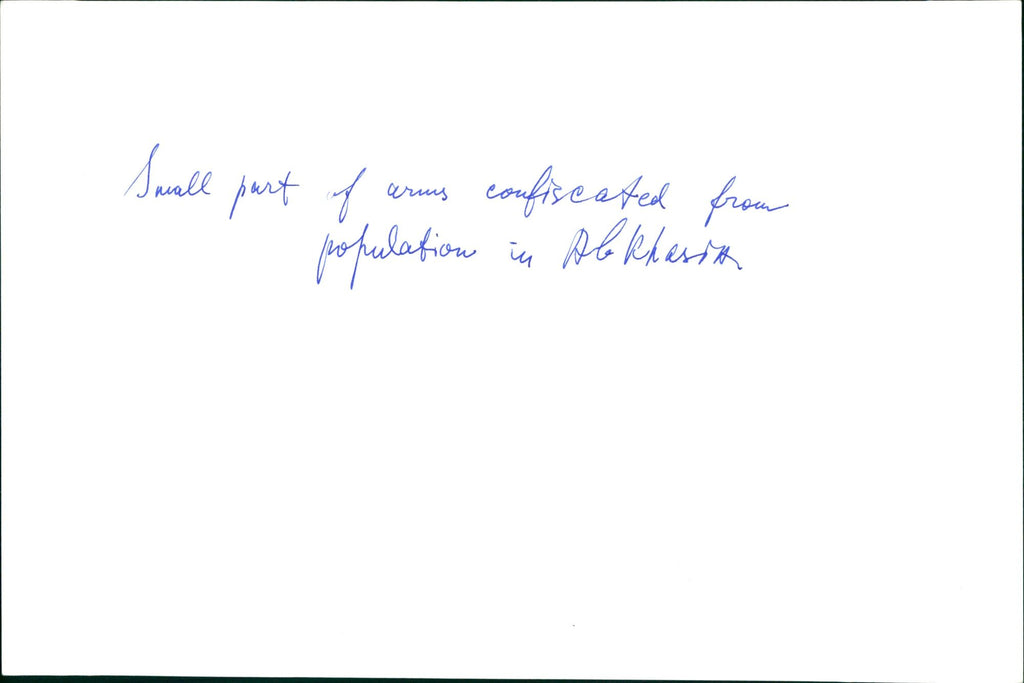 Small part of arms confiscated from
population in Abkhasia